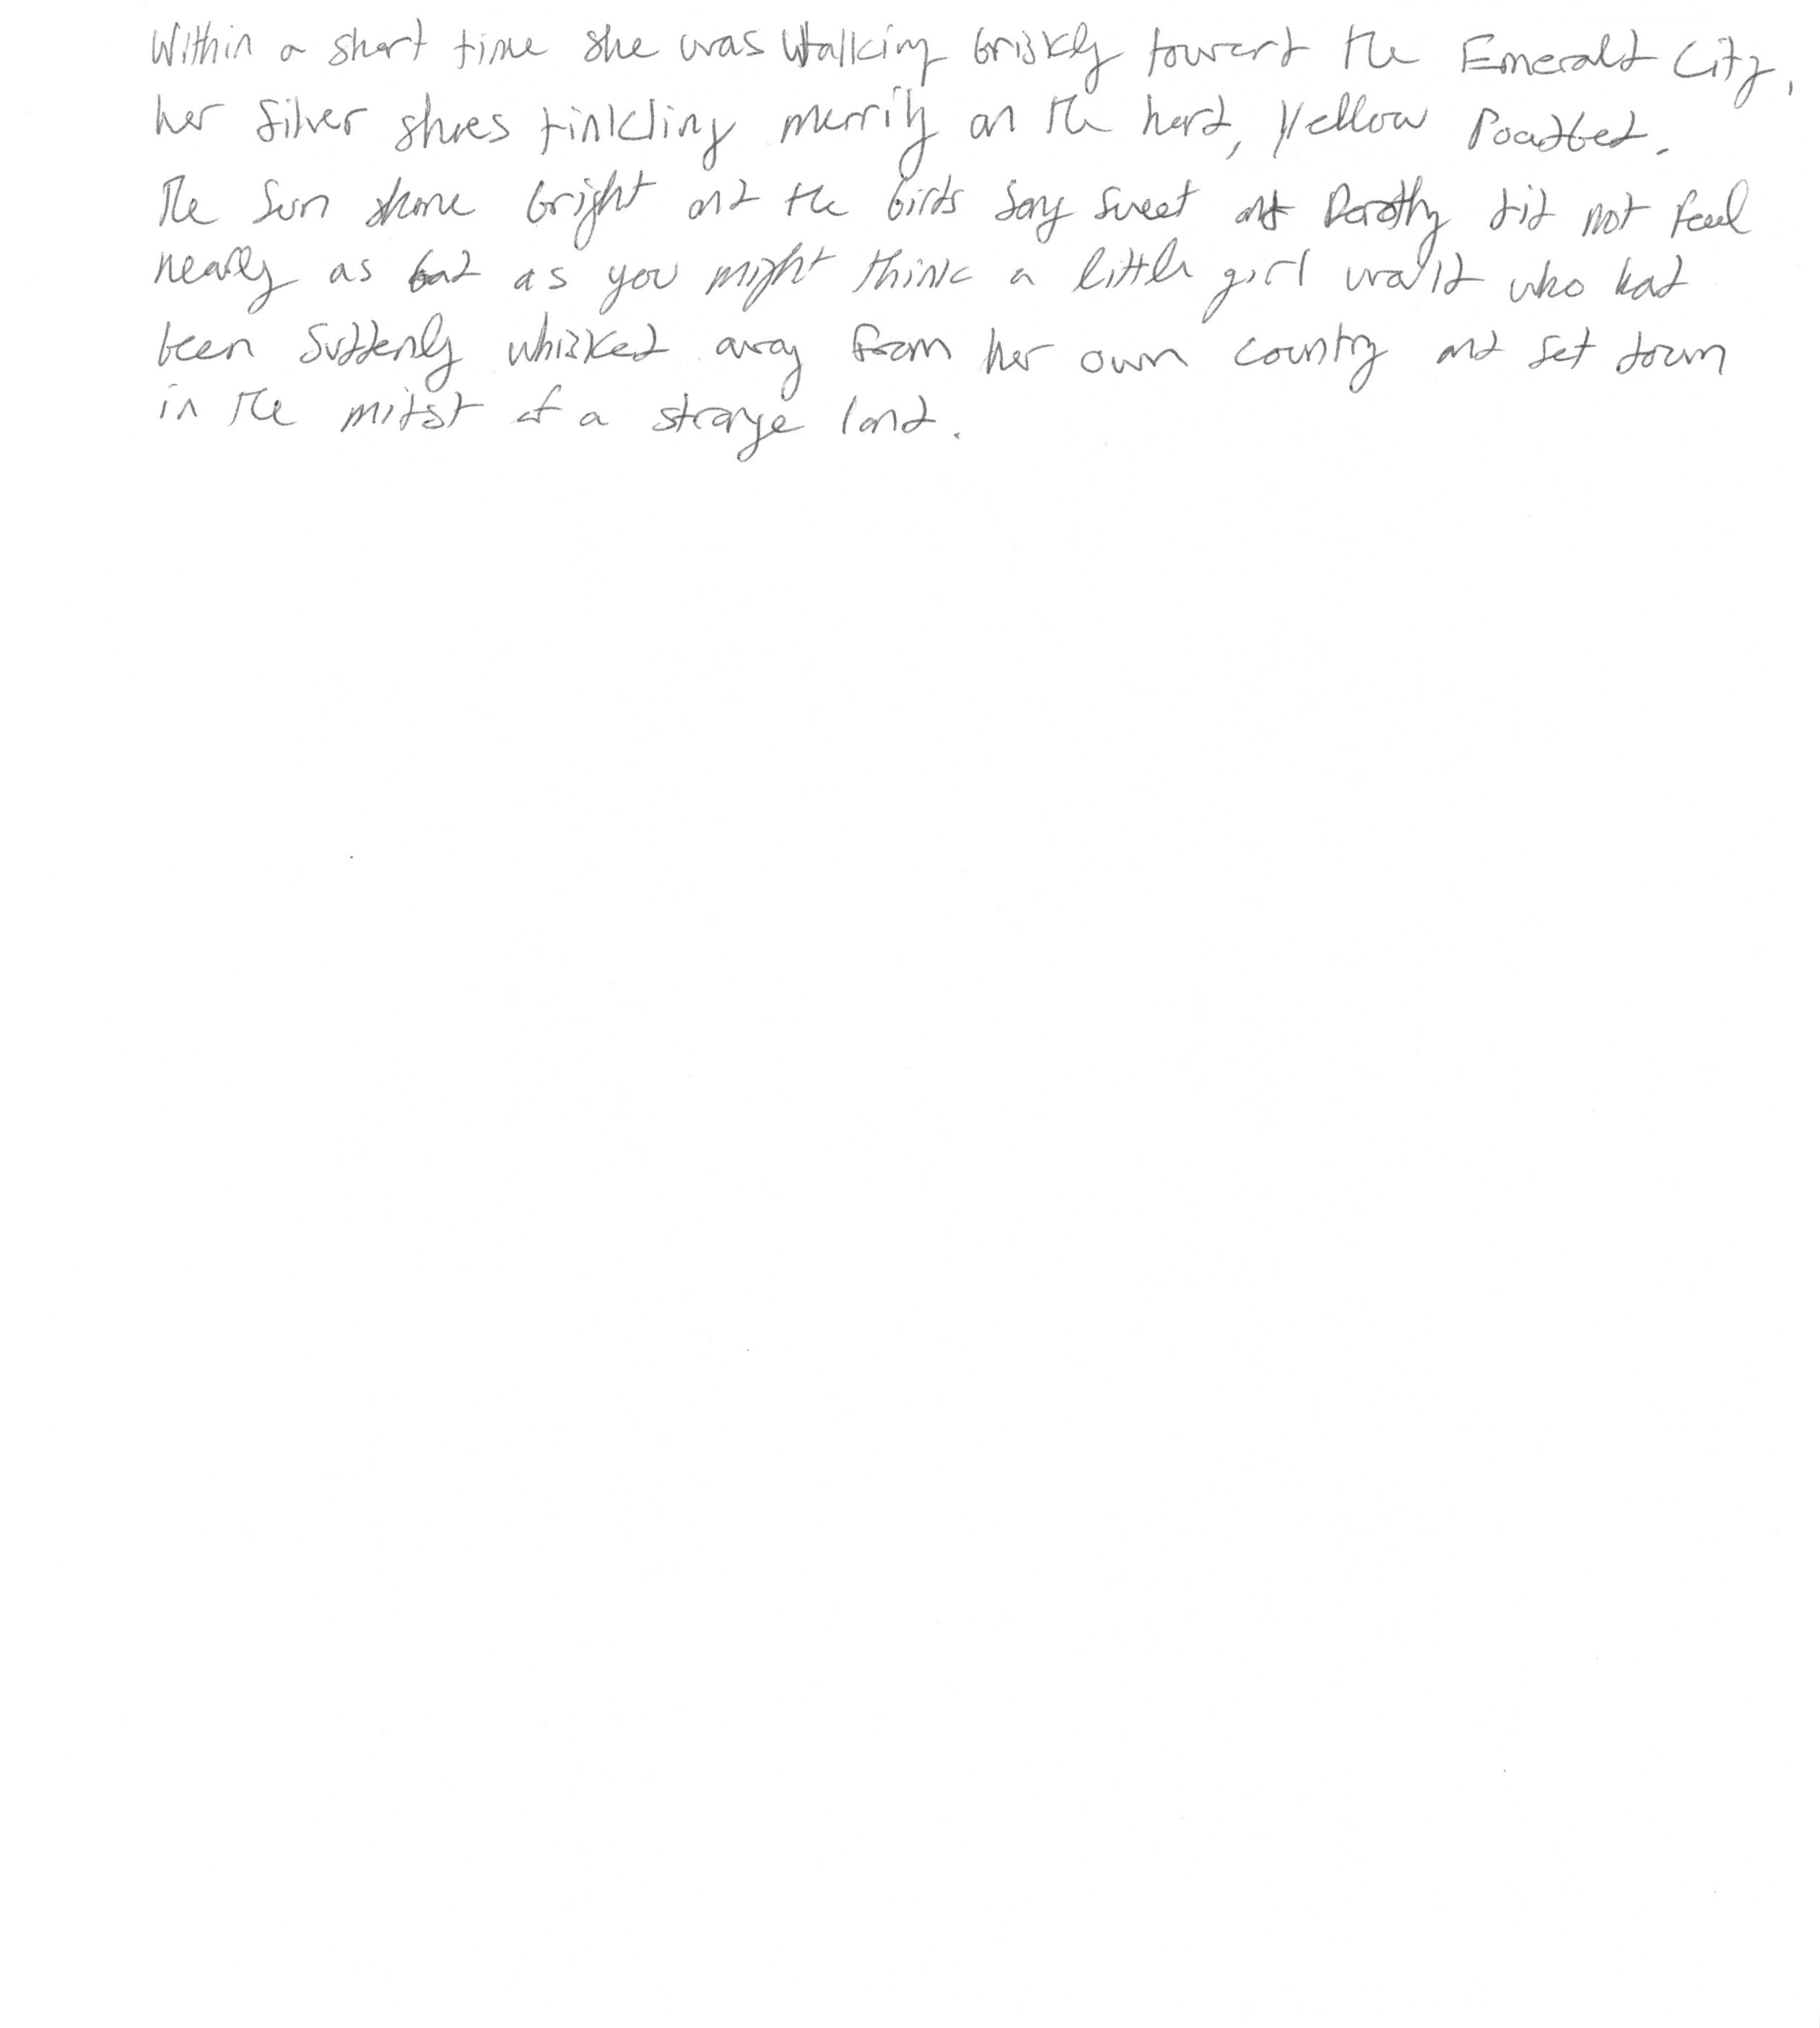 Within a short time she was walking briskly toward the Emerald City,
her Silver shoes tinkling merrily on the hard, yellow roadbed.
The sun shone bright and the birds sang sweet and Dorothy did not feel
nearly as bad as you might think a little girl would who had
been suddenly whisked away from her own country and set down
in the midst of a strange land.